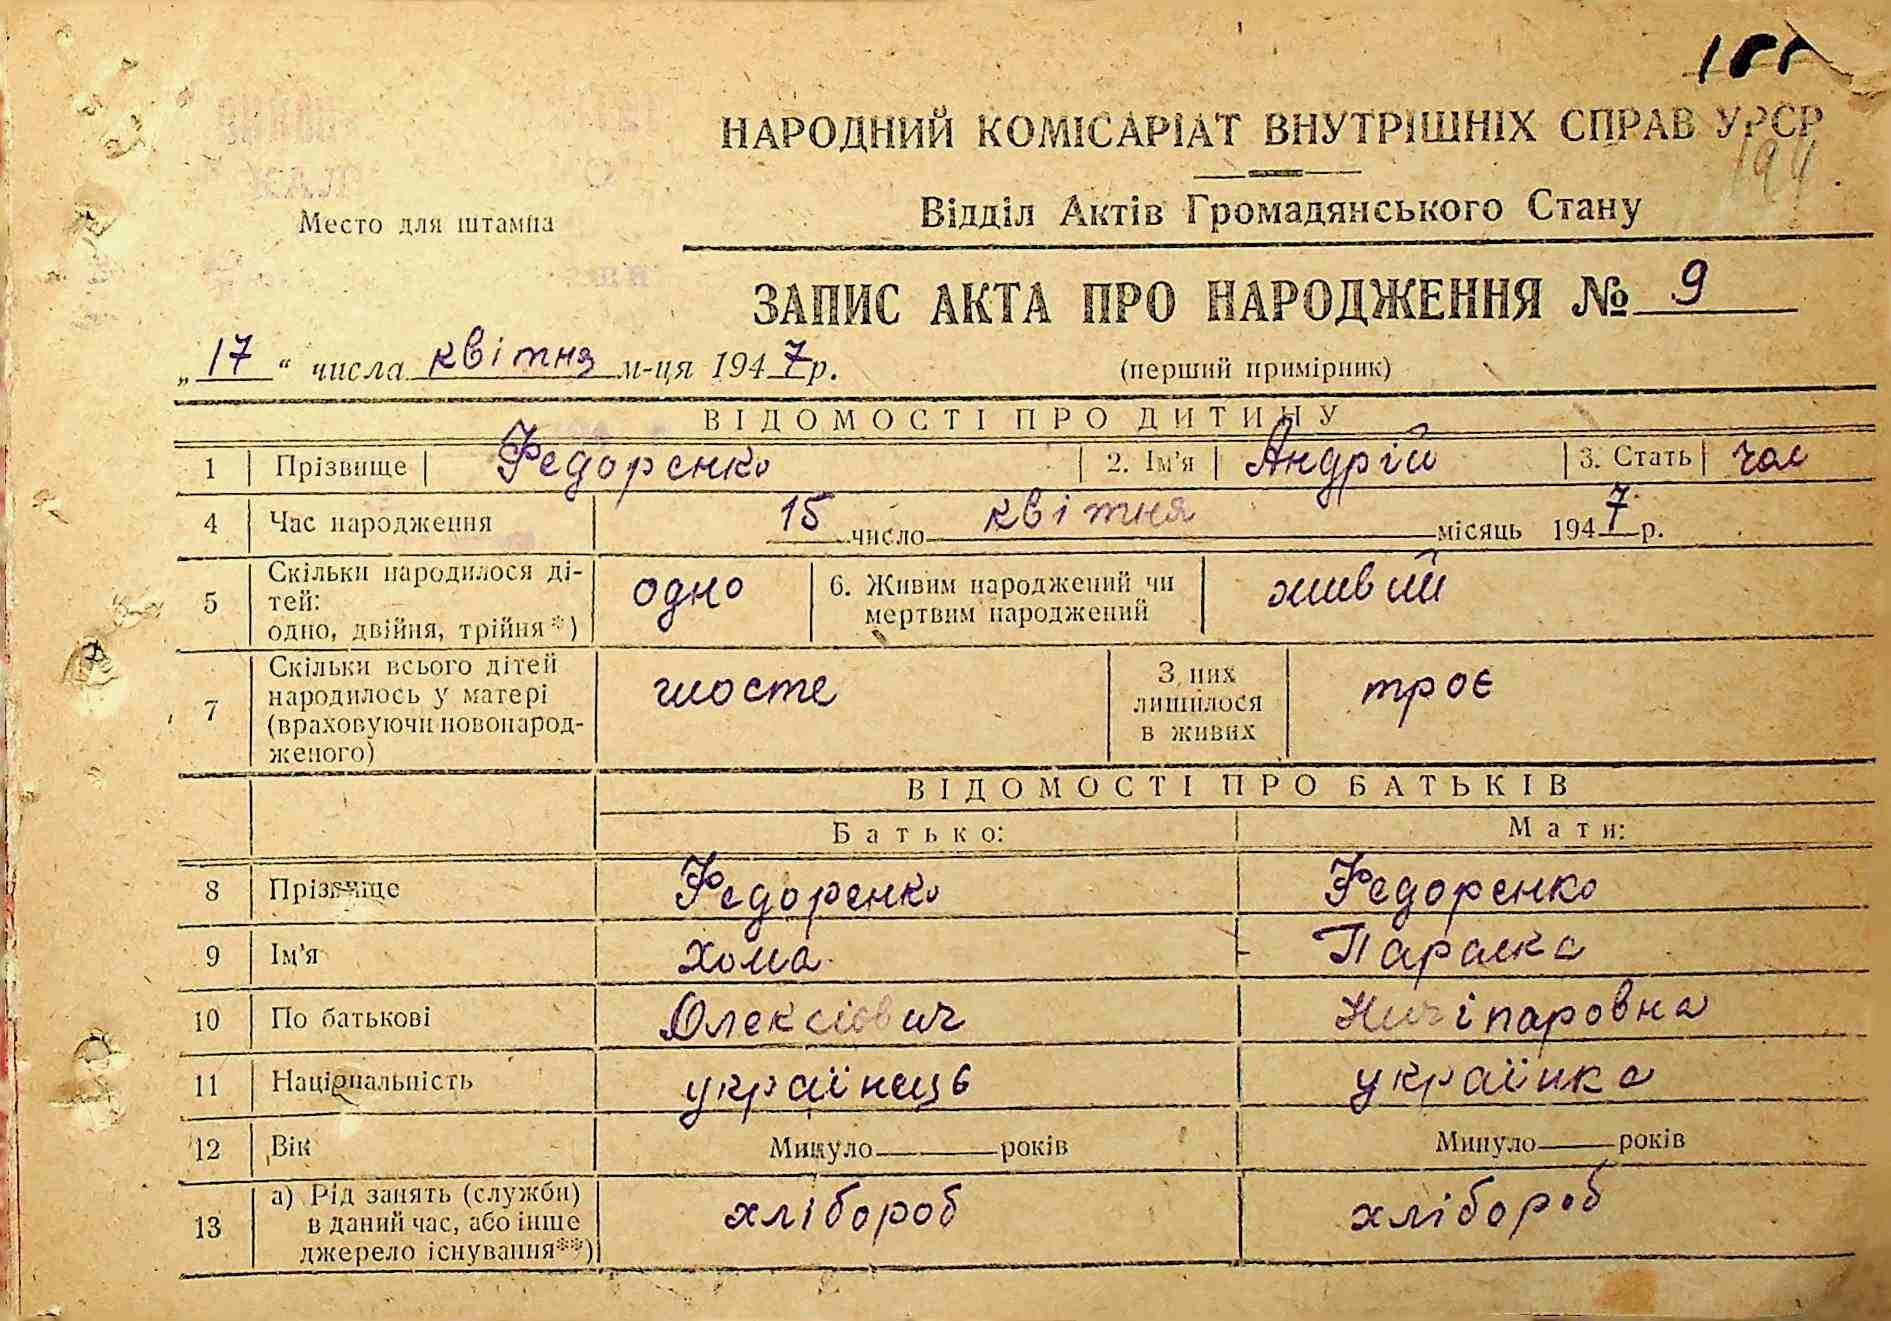 НАРОДНИЙ КОМІСАРІАТ ВНУТРІШНІХ СПРАВ УРСР
194
Место для штампа
Відділ Актів Громадянського Стану
ЗАПИС АКТА ПРО НАРОДЖЕННЯ № 9
„17“ числа квітня м-ця 1947 р.
(перший примірник)
ВІДОМОСТІ ПРО ДИТИНУ
1 Прізвище Федоренко 2. Ім'я Андрій 3. Стать чол
4 Час народження 15 число квітня місяць 1947 р.
5 Скільки народилося ді-
тей:
одно, двійня, трійня*)
одно
6. Живим народжений чи
мертвим народжений
живий
7 Скільки всього дітей
народилось у матері
(враховуючи новонарод-
женого)
шосте
З них
лишилося
в живих
троє
ВІДОМОСТІ ПРО БАТЬКІВ
Батько: Мати:
8 Прізвище Федоренко Федоренко
9 Ім'я Хома Параска
10 По батькові Олексіович Ничіпаровна
11 Національність українець українка
12 Вік Минуло років Минуло років
13 а) Рід занять (служби)
в даний час, або інше
джерело існування**)
хлібороб хлібороб